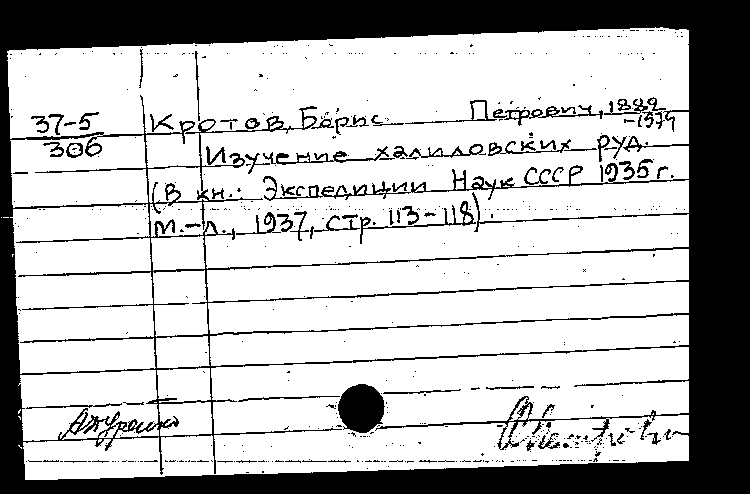 37-5
306
Кротов, Борис Петрович, 1882
-1974
Изучение халиловских руд.
(В кн.: Экспедиции Наук СССР 1935 г.
М.-Л., 1937, стр. 113-118).